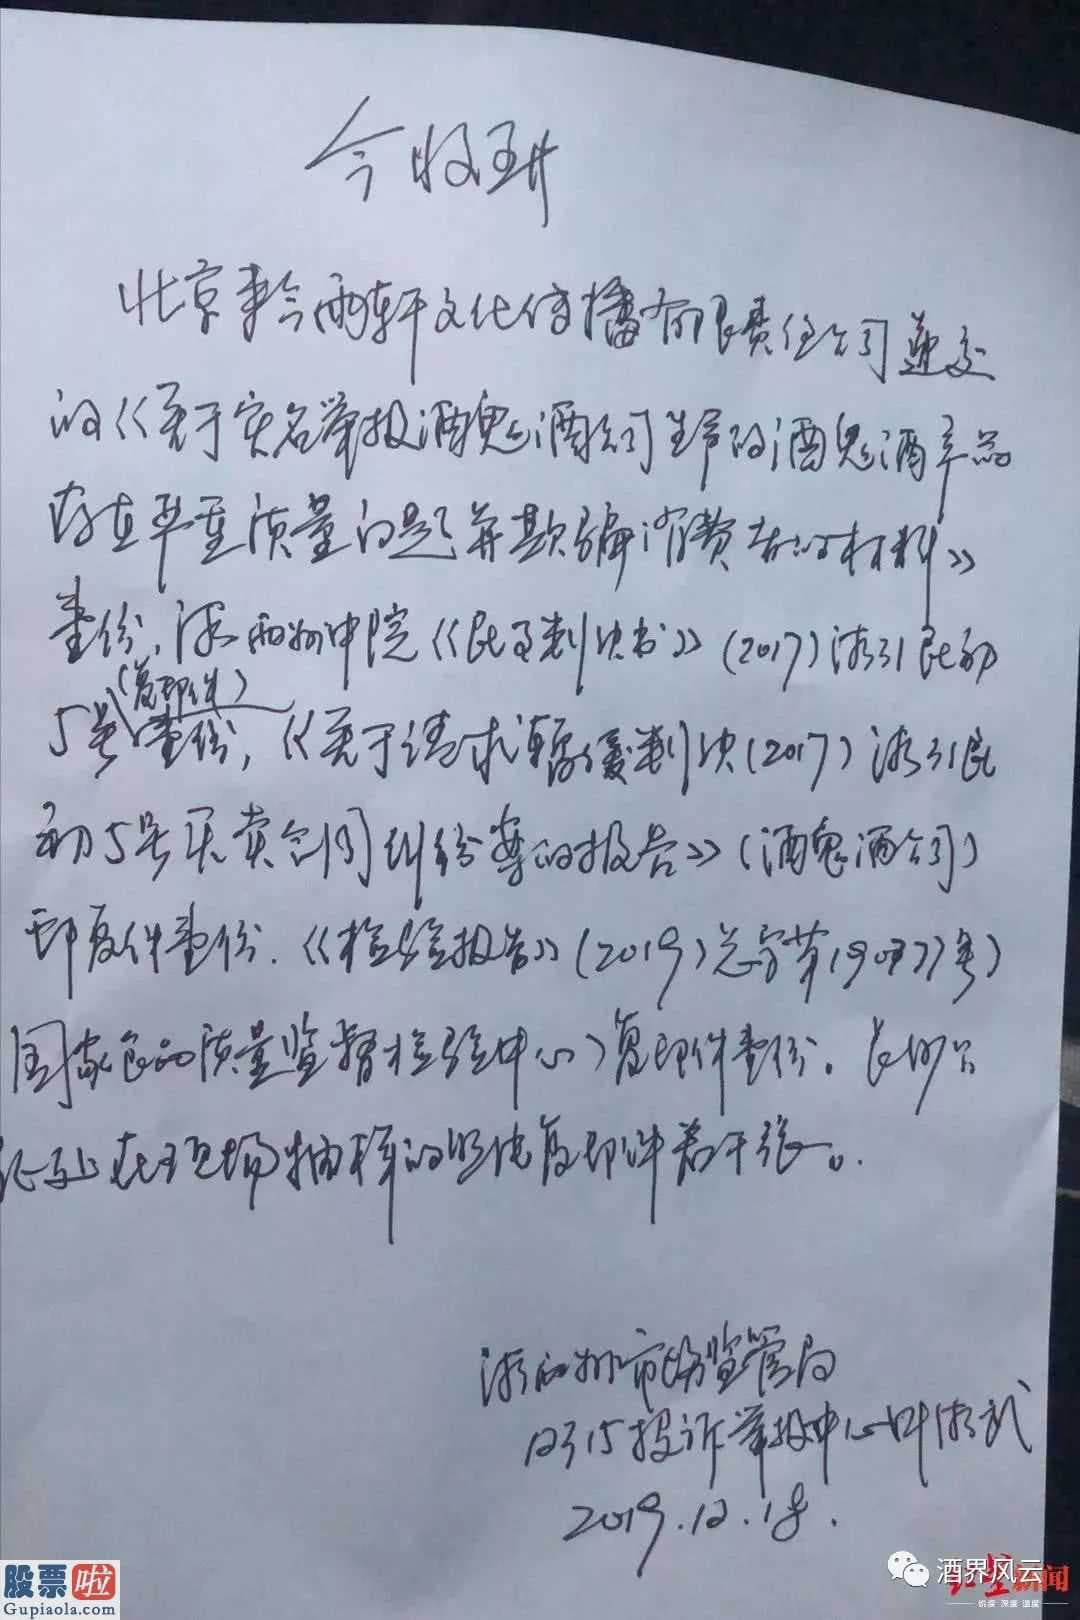 今收到
北京来今雨轩文化传播有限责任公司递交
的《关于实名举报酒鬼酒公司生产的酒鬼酒产品
存在严重质量问题并欺骗消费者的材料》
壹份，湘西州中院《民事判决书》(2017)湘31民初
(复印件)
5号壹份，《关于请求暂缓判决(2017)湘31民
初5号买卖合同纠纷案的报告》(酒鬼酒公司)
印复件壹份.《检验报告》(2019)总字第
国家食品质量监督检验中心)复印件壹份。长沙公
证处在现场抽样的照片复印件若干张。
湘西州市场监管局
12315投诉举报中心 湘武
2019.12.18.
酒界风云
红星新闻
锐度 深度 温度
股票啦
Gupiaola.com